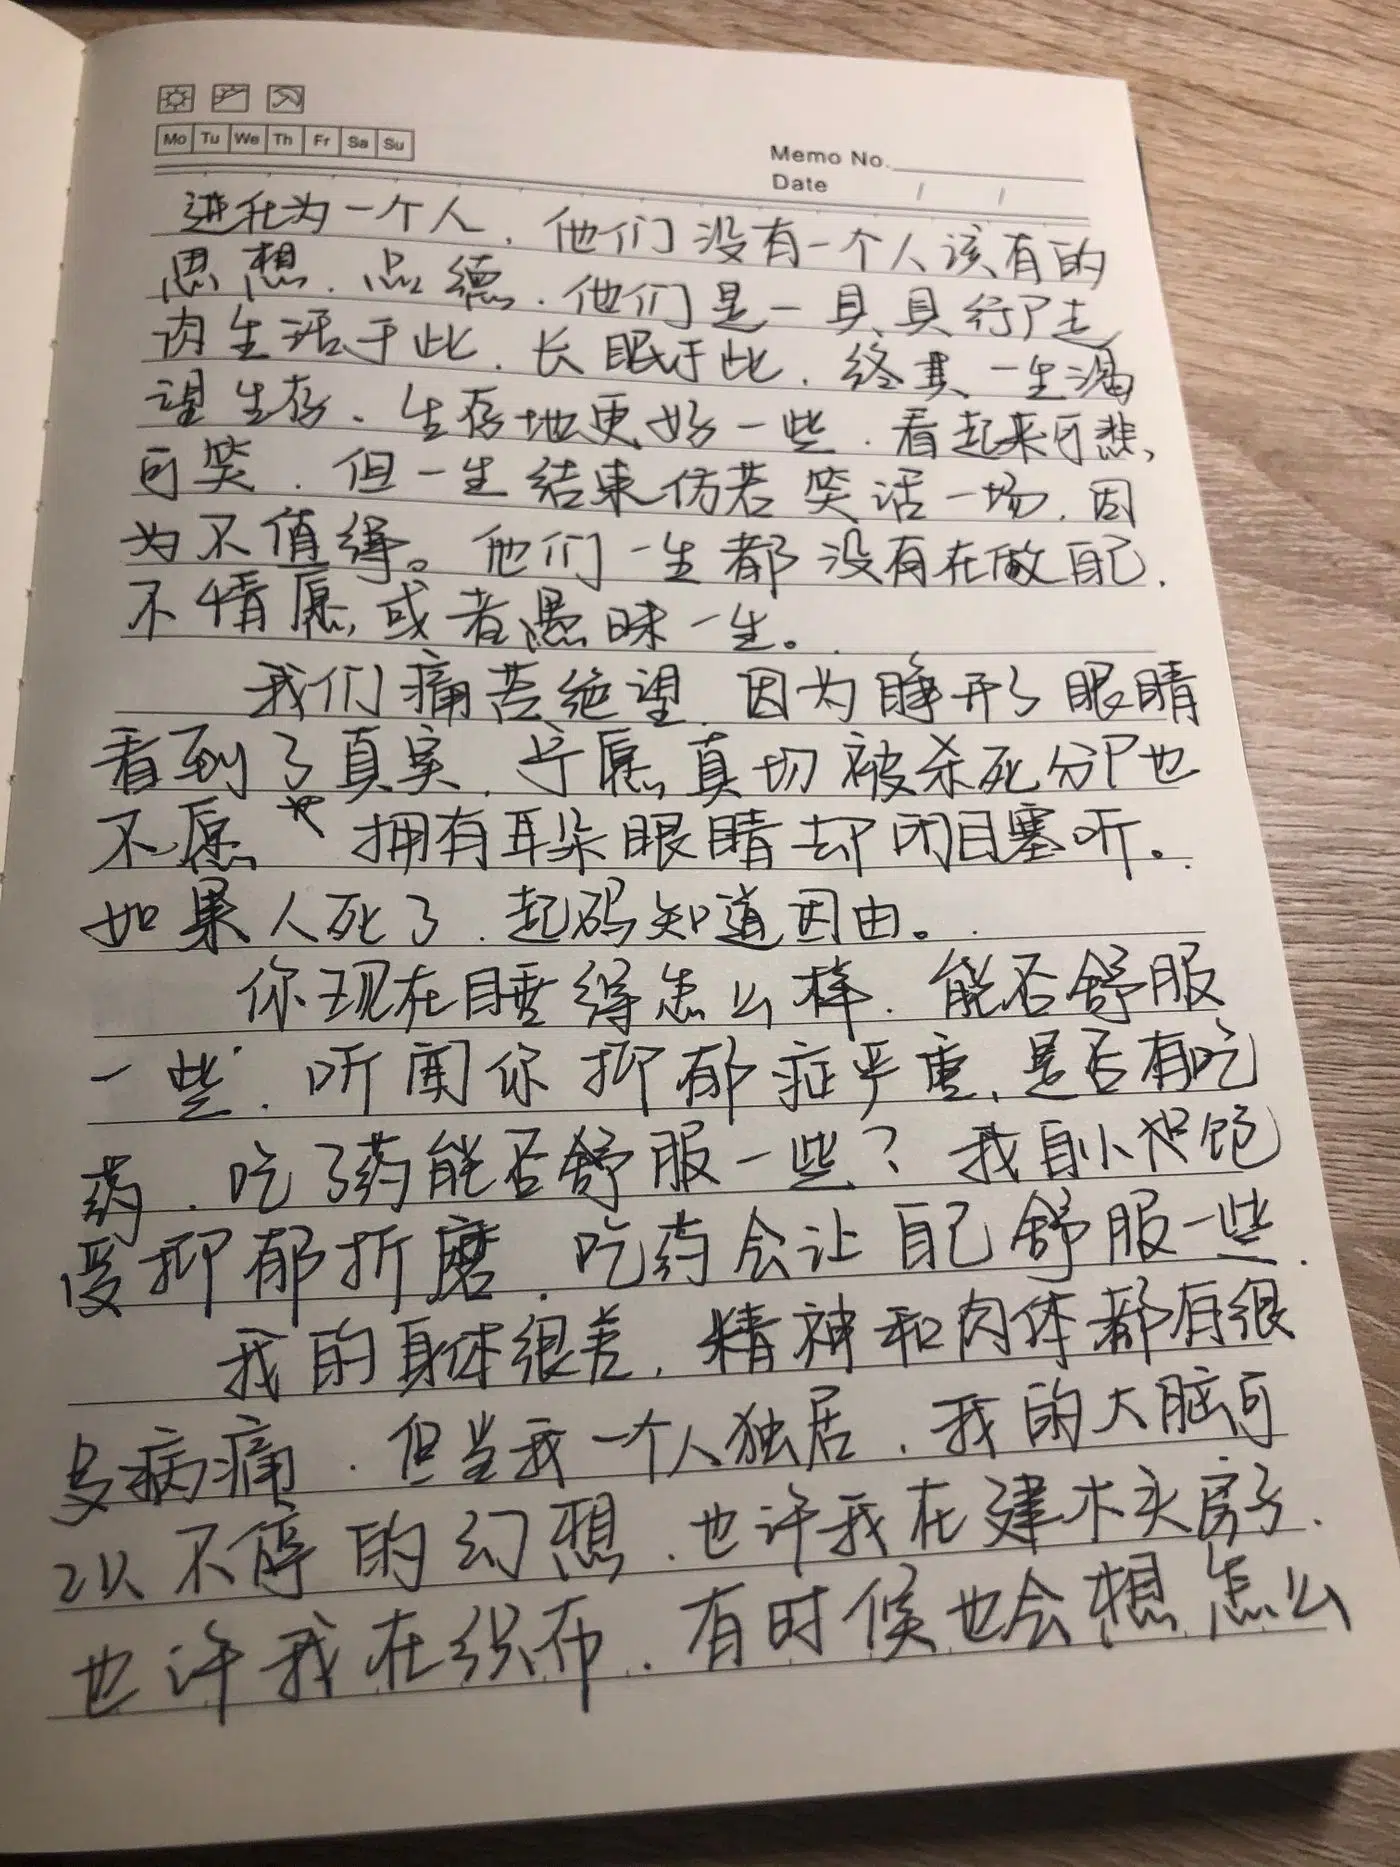 Mo Tu We Th Fr Sa Su
Memo No.
Date / /
进化为一个人，他们没有一个人该有的
思想、品德，他们是一具具行尸走
肉生活于此，长眠于此，终其一生渴
望生存、生存地更好一些，看起来可悲，
可笑，但一生结束仿若笑话一场，因
为不值得。他们一生都没有在做自己，
不情愿，或者愚昧一生。
我们痛苦绝望，因为睁开了眼睛
看到了真实，宁愿真切被杀死分尸也
不愿 拥有耳朵眼睛却闭目塞听。
如果人死了，起码知道因由。
你现在睡得怎么样，能否舒服
一些，听闻你抑郁症严重，是否有吃
药，吃了药能否舒服一些？我自小也饱
受抑郁折磨，吃药会让自己舒服一些，
我的身体很差，精神和肉体都有很
多病痛，但当我一个人独居，我的大脑可
以不停的幻想，也许我在建木头房子，
也许我在织布，有时候也会想怎么